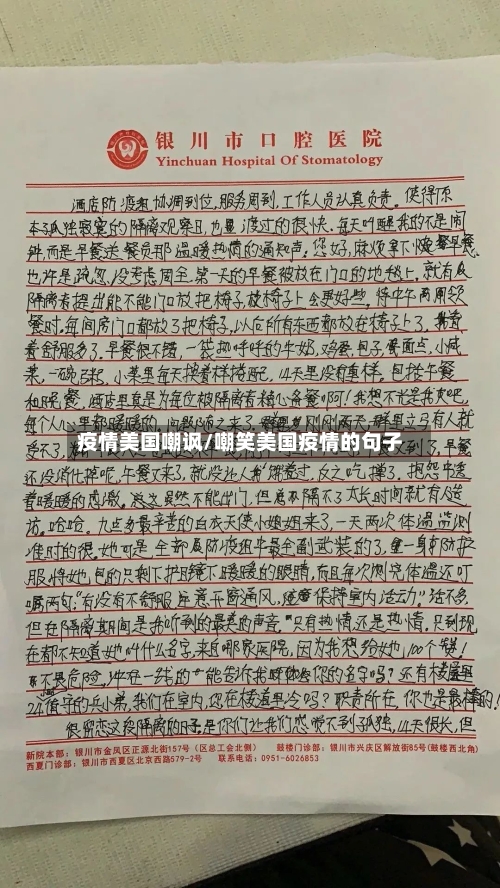 银川市口腔医院
Yinchuan Hospital Of Stomatology
酒店防疫组协调到位,服务周到,工作人员认真负责。使得原
本孤独寂寞的隔离观察日,也量渡过的很快。每天叫醒我的不是闹
钟,而是早餐送餐员那温暖热情的通知声:您好,麻烦拿下早餐。
也许是疏忽,没考虑周全,第一天的早餐被放在门口的地毯上,就有
隔离者提出能不能门口放把椅子,放椅子上会更好些,待中午再用
餐时,每间房门口都放了把椅子,以后所有东西都放在椅子上了,
着舒服多了。早餐很不错,一袋热呼呼的牛奶,鸡蛋,包子,面点,小咸
菜,一碗,小菜里每天换着样搭配,14天里没有重样。包括午餐
和晚餐,酒店里真是为每位被隔离者精心备餐啊!我想不光是我吧
每个人心里都暖暖的,问题随之来了,刚刚两天,群里立马有人就
受不了
疫情美国嘲讽/嘲笑美国疫情的句子
收到了,早餐
还没消化掉呢,午餐又来了,就没让人着过,反之吃撑了,抱怨中透
着暖暖的感激。虽然不能出门,但离不隔不了太长时间就有人造
访。哈哈。九点多最辛苦的白衣天使小姐姐来了,一天两次体温监测
准时的很。她可是全部防疫组中最全副武装的了,一身防护
服将她包的只剩下护目镜下暖暖的眼睛,而且每次测完体温还叮
嘱两句:"有没有不舒服,注意开窗通风,保持室内活动"话不多,
但在隔离期间是我听到的最美的声音。只有热情还是热情,只到现
在都不知道她叫什么名字,来自哪家医院,因为我想给她,100个赞!
不畏危险,冲在一线的"能告诉我你的名字吗?还有楼
24值守的兵小弟,我们在室内,您在楼道里冷吗?职责所在,你也是最棒的!
很留恋这段隔离的日子,是你们让我们感觉不到孤独,14天很长,但
新院本部:银川市金凤区正源北街157号(区总工会北侧) 鼓楼门诊部:银川市兴庆区解放街85号(鼓楼西北角)
西夏门诊部:银川市西夏区北京西路579-2号 联系电话:0951-6026853